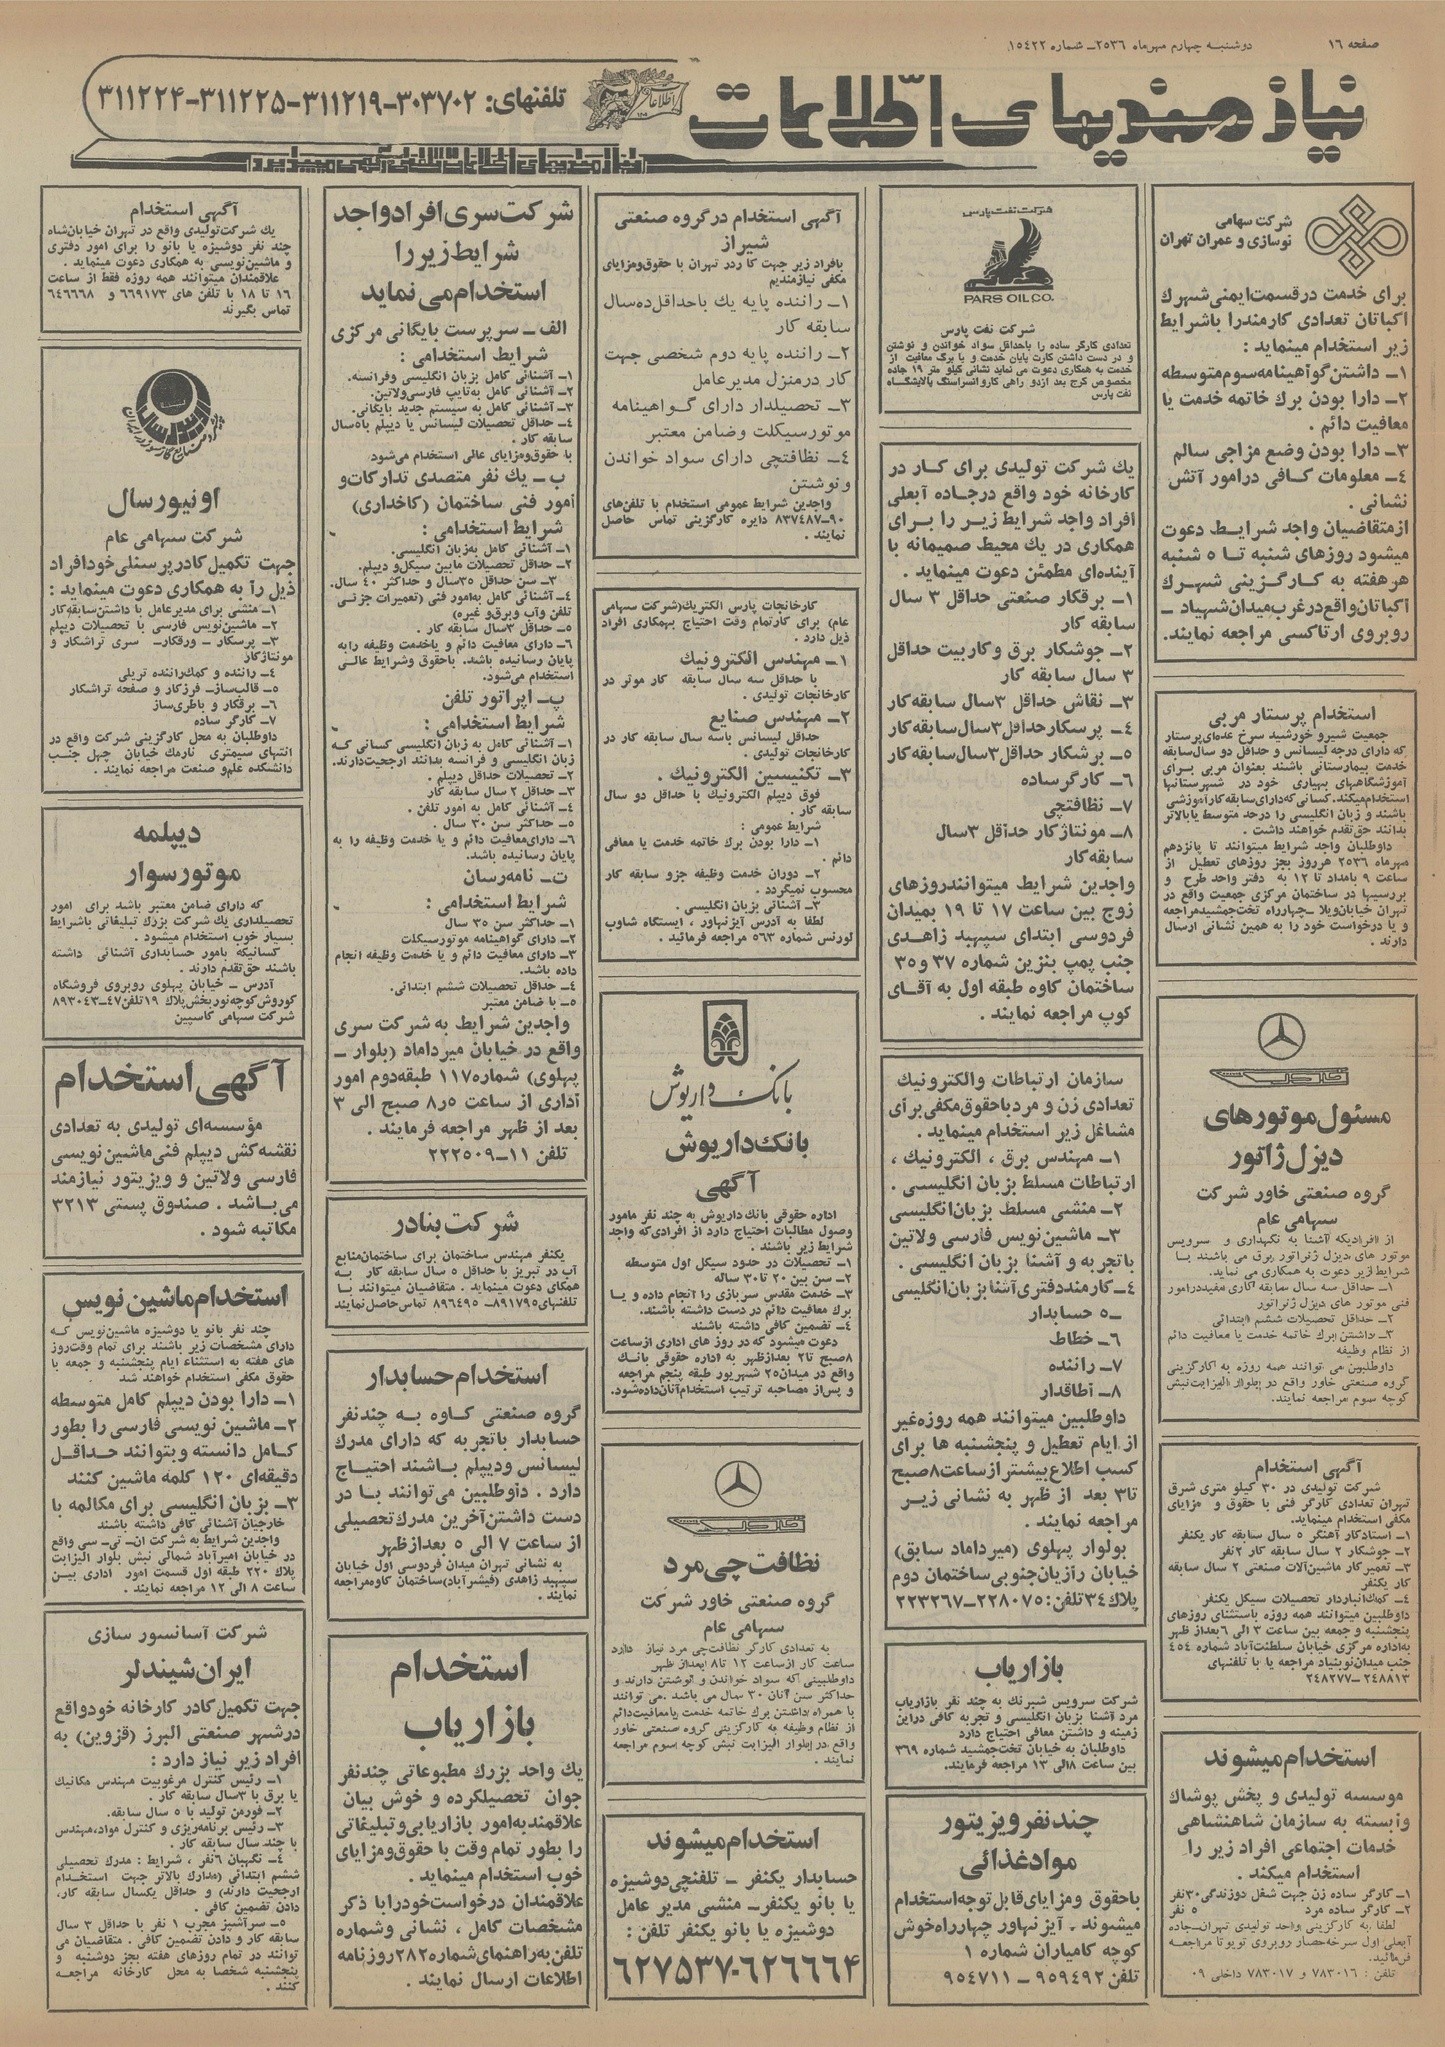 صفحه ۱۶
دوشنبه چهارم مهرماه ۲۵۳۶ــ شماره ۱۵٤۲۲
نیازمندیهای اطلاعات
تلفنهای: ۳۰۳۷۰۲-۳۱۱۲۱۹-۳۱۱۲۲۵-۳۱۱۲۲۴
شرکت سهامی
نوسازی و عمران تهران
برای خدمت درقسمت ایمنی شهرك
اکباتان تعدادی کارمندرا باشرایط
زیر استخدام مینماید :
۱ــ داشتن گواهینامه سوم متوسطه
۲ــ دارا بودن برك خاتمه خدمت یا
معافیت دائم .
۳ــ دارا بودن وضع مزاجی سالم
٤ــ معلومات کافی درامور آتش
نشانی .
ازمتقاضیان واجد شرایط دعوت
میشود روزهای شنبه تا ۵ شنبه
هرهفته به کارگزینی شهرك
اکباتان واقع درغرب میدان شهیاد ــ
روبروی ارتاکسی مراجعه نمایند.
استخدام پرستار مربی
جمعیت شیرو خورشید سرخ عده‌ای پرستار
که دارای درجه لیسانس و حداقل دو سال سابقه
خدمت بیمارستانی باشند بعنوان مربی برای
آموزشگاههای بهیاری خود در شهرستانها
استخدام میکند. کسانی که دارای سابقه کارآموزشی
باشند و زبان انگلیسی را درحد متوسط یا بالاتر
بدانند حق تقدم خواهند داشت .
داوطلبان واجد شرایط میتوانند تا پانزدهم
مهرماه ۲۵۳۶ هرروز بجز روزهای تعطیل از
ساعت ۹ بامداد تا ۱۲ به دفتر واحد طرح و
بررسیها در ساختمان مرکزی جمعیت واقع در
تهران خیابان ویلا ــ چهارراه تخت جمشید مراجعه
و یا درخواست خود را به همین نشانی ارسال
دارند .
مسئول موتورهای
دیزل ژنراتور
گروه صنعتی خاور شرکت
سهامی عام
از افرادیکه آشنا به نگهداری و سرویس
موتور های دیزل ژنراتور برق می باشند با
شرایط زیر دعوت به همکاری می نماید.
۱ــ حداقل سه سال سابقه کاری مفید در امور
فنی موتور های دیزل ژنراتور
۲ــ حداقل تحصیلات ششم ابتدائی
۳ــ داشتن برك خاتمه خدمت یا معافیت دائم
از نظام وظیفه
داوطلبین می توانند همه روزه به کارگزینی
گروه صنعتی خاور واقع در بلوار الیزابت نبش
کوچه سوم مراجعه نمایند.
آگهی استخدام
شرکت تولیدی در ۳۰ کیلو متری شرق
تهران تعدادی کارگر فنی با حقوق و مزایای
مکفی استخدام مینماید.
۱ــ استادکار آهنگر ۵ سال سابقه کار یکنفر
۲ــ جوشکار ۲ سال سابقه کار ۲نفر
۳ــ تعمیر کار ماشین‌آلات صنعتی ۲ سال سابقه
کار یکنفر
٤ــ کمك انباردار تحصیلات سیکل یکنفر
داوطلبین میتوانند همه روزه باستثنای روزهای
پنجشنبه و جمعه بین ساعت ۳ الی ۶ بعداز ظهر
به‌اداره مرکزی خیابان سلطنت‌آباد شماره ٤۵٤
جنب میدان نوبنیاد مراجعه یا با تلفنهای
۲٤۸۸۱۳ ــ ۲٤۸۲۷۷
استخدام میشوند
موسسه تولیدی و پخش پوشاك
وابسته به سازمان شاهنشاهی
خدمات اجتماعی افراد زیر را
استخدام میکند .
۱ــ کارگر ساده زن جهت شغل دوزندگی ۳۰نفر
۲ــ کارگر ساده مرد ۵ نفر
لطفا به کارگزینی واحد تولیدی تهران ــ جاده
آبعلی اول سرخه حصار روبروی تویوتا مراجعه
فرمائید.
تلفن : ۷۸۳۰۱۶ و ۷۸۳۰۱۷ داخلی ۰۹
شرکت نفت پارس
PARS OIL CO.
شرکت نفت پارس
تعدادی کارگر ساده را باحداقل سواد خواندن و نوشتن
و در دست داشتن کارت پایان خدمت و یا برگ معافیت از
خدمت به همکاری دعوت می نماید نشانی کیلو متر ۱۹ جاده
مخصوص کرج بعد ازدو راهی کاروانسراسنگ پالایشگاه
نفت پارس
یك شرکت تولیدی برای کار در
کارخانه خود واقع درجاده آبعلی
افراد واجد شرایط زیر را برای
همکاری در یك محیط صمیمانه با
آینده‌ای مطمئن دعوت مینماید .
۱ــ برقکار صنعتی حداقل ۳ سال
سابقه کار
۲ــ جوشکار برق و کاربیت حداقل
۳ سال سابقه کار
۳ــ نقاش حداقل ۳سال سابقه کار
٤ــ پرسکار حداقل ۳سال سابقه کار
۵ــ برشکار حداقل ۳سال سابقه کار
۶ــ کارگرساده
۷ــ نظافتچی
۸ــ مونتاژکار حداقل ۳سال
سابقه کار
واجدین شرایط میتوانند روزهای
زوج بین ساعت ۱۷ تا ۱۹ بمیدان
فردوسی ابتدای سپهبد زاهدی
جنب پمپ بنزین شماره ۳۷ و۳۵
ساختمان کاوه طبقه اول به آقای
کوپ مراجعه نمایند .
سازمان ارتباطات والکترونیك
تعدادی زن و مرد باحقوق مکفی برای
مشاغل زیر استخدام مینماید .
۱ــ مهندس برق ، الکترونیك ،
ارتباطات مسلط بزبان انگلیسی .
۲ــ منشی مسلط بزبان انگلیسی
۳ــ ماشین نویس فارسی ولاتین
باتجربه و آشنا بزبان انگلیسی .
٤ــ کارمند دفتری آشنا بزبان انگلیسی
۵ــ حسابدار
۶ــ خطاط
۷ــ راننده
۸ــ اطاقدار
داوطلبین میتوانند همه روزه غیر
از ایام تعطیل و پنجشنبه ها برای
کسب اطلاع بیشتر از ساعت ۸صبح
تا ۳ بعد از ظهر به نشانی زیر
مراجعه نمایند .
بولوار پهلوی (میرداماد سابق)
خیابان رازیان جنوبی ساختمان دوم
پلاك ۳٤ تلفن: ۲۲۸۰۷۵ــ ۲۲۳۲۶۷
بازاریاب
شرکت سرویس شبرنك به چند نفر بازاریاب
مرد آشنا بزبان انگلیسی و تجربه کافی دراین
زمینه و داشتن معافی احتیاج دارد
داوطلبان به خیابان تخت جمشید شماره ۳۶۹
بین ساعت ۸الی ۱۳ مراجعه فرمایند.
چند نفر ویزیتور
مواد غذائی
باحقوق ومزایای قابل توجه استخدام
میشوند . آیزنهاور چهارراه خوش
کوچه کامیاران شماره ۱
تلفن ۹۵۹٤۹۲ ــ ۹۵٤۷۱۱
آگهی استخدام درگروه صنعتی
شیراز
بافراد زیر جهت کا ردر تهران با حقوق ومزایای
مکفی نیازمندیم
۱ــ راننده پایه یك باحداقل ده سال
سابقه کار
۲ــ راننده پایه دوم شخصی جهت
کار درمنزل مدیرعامل
۳ــ تحصیلدار دارای گواهینامه
موتورسیکلت وضامن معتبر
٤ــ نظافتچی دارای سواد خواندن
ونوشتن
واجدین شرایط عمومی استخدام با تلفن‌های
۹۰-۸۳۷٤۸۷ دایره کارگزینی تماس حاصل
نمایند .
کارخانجات پارس الکتریك(شرکت سهامی
عام) برای کارتمام وقت احتیاج بهمکاری افراد
ذیل دارد .
۱ــ مهندس الکترونیك
با حداقل سه سال سابقه کار موثر در
کارخانجات تولیدی .
۲ــ مهندس صنایع
حداقل لیسانس باسه سال سابقه کار در
کارخانجات تولیدی .
۳ــ تکنیسین الکترونیك .
فوق دیپلم الکترونیك با حداقل دو سال
سابقه کار .
شرایط عمومی :
۱ــ دارا بودن برك خاتمه خدمت یا معافی
دائم .
۲ــ دوران خدمت وظیفه جزو سابقه کار
محسوب نمیگردد .
۳ــ آشنائی بزبان انگلیسی .
لطفا به آدرس آیزنهاور ، ایستگاه شاوب
لورنس شماره ۵۶۳ مراجعه فرمائید .
بانک داریوش
بانك داریوش
آگهی
اداره حقوقی بانك داریوش به چند نفر مامور
وصول مطالبات احتیاج دارد از افرادی که واجد
شرایط زیر باشند .
۱ــ تحصیلات در حدود سیکل اول متوسطه
۲ــ سن بین ۲۰ تا ۳۰ ساله
۳ــ خدمت مقدس سربازی را انجام داده و یا
برك معافیت دائم در دست داشته باشند.
٤ــ تضمین کافی داشته باشند
دعوت میشود که در روز های اداری ازساعت
۸صبح تا۲ بعدازظهر به اداره حقوقی بانك
واقع در میدان ۲۵ شهریور طبقه پنجم مراجعه
و پس از مصاحبه ترتیب استخدام آنان داده شود.
نظافت چی مرد
گروه صنعتی خاور شرکت
سهامی عام
به تعدادی کارگر نظافت چی مرد نیاز دارد
ساعت کار ازساعت ۱۲ تا ۸ بعداز ظهر
داوطلبینی که سواد خواندن و نوشتن دارند و
حداکثر سن آنان ۳۰ سال می باشد می توانند
با همراه داشتن برك خاتمه خدمت یا معافیت دائم
از نظام وظیفه به کارگزینی گروه صنعتی خاور
واقع در بلوار الیزابت نبش کوچه سوم مراجعه
نمایند .
استخدام میشوند
حسابدار یکنفر ــ تلفنچی دوشیزه
یا بانو یکنفرــ منشی مدیر عامل
دوشیزه یا بانو یکنفر تلفن :
۶۲۷۵۳۷-۶۲۶۶۶۴
شرکت سری افراد واجد
شرایط زیر را
استخدام می نماید
الف ــ سرپرست بایگانی مرکزی
شرایط استخدامی :
۱ــ آشنائی کامل بزبان انگلیسی وفرانسه.
۲ــ آشنائی کامل به‌تایپ فارسی ولاتین.
۳ــ آشنائی کامل به سیستم جدید بایگانی.
٤ــ حداقل تحصیلات لیسانس یا دیپلم با۵ سال
سابقه کار .
با حقوق ومزایای عالی استخدام می‌شود
ب ــ یك نفر متصدی تدارکات و
امور فنی ساختمان (کاخداری)
شرایط استخدامی :
۱ــ آشنائی کامل به‌زبان انگلیسی.
۲ــ حداقل تحصیلات مابین سیکل و دیپلم.
۳ــ سن حداقل ۳۵سال و حداکثر ٤۰ سال.
٤ــ آشنائی کامل به‌امور فنی (تعمیرات جزئی
تلفن وآب وبرق و غیره)
۵ــ حداقل ۳سال سابقه کار .
۶ــ دارای معافیت دائم و یاخدمت وظیفه رابه
پایان رسانیده باشد. باحقوق وشرایط عالی
استخدام می‌شود.
پ ــ اپراتور تلفن
شرایط استخدامی :
۱ــ آشنائی کامل به زبان انگلیسی کسانی که
زبان انگلیسی و فرانسه بدانند ارجحیت دارند.
۲ــ تحصیلات حداقل دیپلم .
۳ــ حداقل ۲ سال سابقه کار
٤ــ آشنائی کامل به امور تلفن .
۵ــ حداکثر سن ۳۰ سال .
۶ــ دارای معافیت دائم و یا خدمت وظیفه را به
پایان رسانیده باشد.
ت ــ نامه رسان
شرایط استخدامی :
۱ــ حداکثر سن ۳۵ سال
۲ــ دارای گواهینامه موتورسیکلت
۳ــ دارای معافیت دائم و یا خدمت وظیفه انجام
داده باشد.
٤ــ حداقل تحصیلات ششم ابتدائی.
۵ــ با ضامن معتبر
واجدین شرایط به شرکت سری
واقع در خیابان میرداماد (بلوار ــ
پهلوی) شماره ۱۱۷ طبقه دوم امور
اداری از ساعت ۸٫۵ صبح الی ۳
بعد از ظهر مراجعه فرمایند .
تلفن ۱۱-۲۲۲۵۰۹
شرکت بنادر
یکنفر مهندس ساختمان برای ساختمان منابع
آب در تبریز با حداقل ۵ سال سابقه کار به
همکاری دعوت مینماید . متقاضیان میتوانند با
تلفنهای ۸۹۱۷۹۵ــ ۸۹۶٤۹۵ تماس حاصل نمایند
استخدام حسابدار
گروه صنعتی کاوه به چند نفر
حسابدار باتجربه که دارای مدرك
لیسانس ودیپلم باشند احتیاج
دارد . داوطلبین می‌توانند با در
دست داشتن آخرین مدرك تحصیلی
از ساعت ۷ الی ۵ بعدازظهر
به نشانی تهران میدان فردوسی اول خیابان
سپهبد زاهدی (فیشرآباد) ساختمان کاوه مراجعه
نمایند .
استخدام
بازاریاب
یك واحد بزرك مطبوعاتی چندنفر
جوان تحصیلکرده و خوش بیان
علاقمند به‌امور بازاریابی و تبلیغاتی
را بطور تمام وقت با حقوق و مزایای
خوب استخدام مینماید .
علاقمندان درخواست خود را با ذکر
مشخصات کامل ، نشانی و شماره
تلفن به راهنمای شماره ۲۸۲ روزنامه
اطلاعات ارسال نمایند .
آگهی استخدام
یك شرکت تولیدی واقع در تهران خیابان شاه
چند نفر دوشیزه یا بانو را برای امور دفتری
و ماشین نویسی به همکاری دعوت مینماید .
علاقمندان میتوانند همه روزه فقط از ساعت
۱۶ تا ۱۸ با تلفن های ۶۶۹۱۷۳ و ۶٤۶۶۶۸
تماس بگیرند
اونیورسال
شرکت سهامی عام
جهت تکمیل کادر پرسنلی خود افراد
ذیل را به همکاری دعوت مینماید :
۱ــ منشی برای مدیرعامل با داشتن سابقه کار
۲ــ ماشین نویس فارسی با تحصیلات دیپلم
۳ــ پرسکار ــ ورقکار ــ سری تراشکار و
مونتاژکار
٤ــ راننده و کمك راننده تریلی
۵ــ قالب‌ساز ــ فرزکار و صفحه تراشکار
۶ــ برقکار و باطری‌ساز
۷ــ کارگر ساده
داوطلبان به محل کارگزینی شرکت واقع در
انتهای سیمتری نارمك خیابان چهل جنب
دانشکده علم و صنعت مراجعه نمایند .
دیپلمه
موتورسوار
که دارای ضامن معتبر باشد برای امور
تحصیلداری یك شرکت بزرك تبلیغاتی باشرایط
بسیار خوب استخدام میشود .
کسانیکه بامور حسابداری آشنائی داشته
باشند حق تقدم دارند .
آدرس ــ خیابان پهلوی روبروی فروشگاه
کوروش کوچه نوربخش پلاك ۱۹ تلفن ٤۷-۸۹۳۰٤۳
شرکت سهامی کاسپین
آگهی استخدام
مؤسسه‌ای تولیدی به تعدادی
نقشه کش دیپلم فنی ماشین نویسی
فارسی ولاتین و ویزیتور نیازمند
می‌باشد . صندوق پستی ۳۲۱۳
مکاتبه شود .
استخدام ماشین نویس
چند نفر بانو یا دوشیزه ماشین نویس که
دارای مشخصات زیر باشند برای تمام وقت روز
های هفته به استثناء ایام پنجشنبه و جمعه با
حقوق مکفی استخدام خواهند شد
۱ــ دارا بودن دیپلم کامل متوسطه
۲ــ ماشین نویسی فارسی را بطور
کامل دانسته و بتوانند حداقل
دقیقه‌ای ۱۲۰ کلمه ماشین کنند
۳ــ بزبان انگلیسی برای مکالمه با
خارجیان آشنائی کافی داشته باشند
واجدین شرایط به شرکت ان ــ تی ــ سی واقع
در خیابان امیرآباد شمالی نبش بلوار الیزابت
پلاك ۲۲۰ طبقه اول قسمت امور اداری بین
ساعت ۸ الی ۱۲ مراجعه نمایند .
شرکت آسانسور سازی
ایران شیندلر
جهت تکمیل کادر کارخانه خود واقع
درشهر صنعتی البرز (قزوین) به
افراد زیر نیاز دارد :
۱ــ رئیس کنترل مرغوبیت مهندس مکانیك
یا برق با ۳سال سابقه کار .
۲ــ فورمن تولید با ۵ سال سابقه.
۳ــ رئیس برنامه‌ریزی و کنترل مواد، مهندس
با چند سال سابقه کار .
٤ــ نگهبان ۶نفر ، شرایط : مدرك تحصیلی
ششم ابتدائی (مدارك بالاتر جهت استخدام
ارجحیت دارند) و حداقل یکسال سابقه کار،
دادن تضمین کافی .
۵ــ سرآشپز مجرب ۱ نفر با حداقل ۳ سال
سابقه کار و دادن تضمین کافی . متقاضیان می
توانند در تمام روزهای هفته بجز دوشنبه و
پنجشنبه شخصا به محل کارخانه مراجعه
کنند .